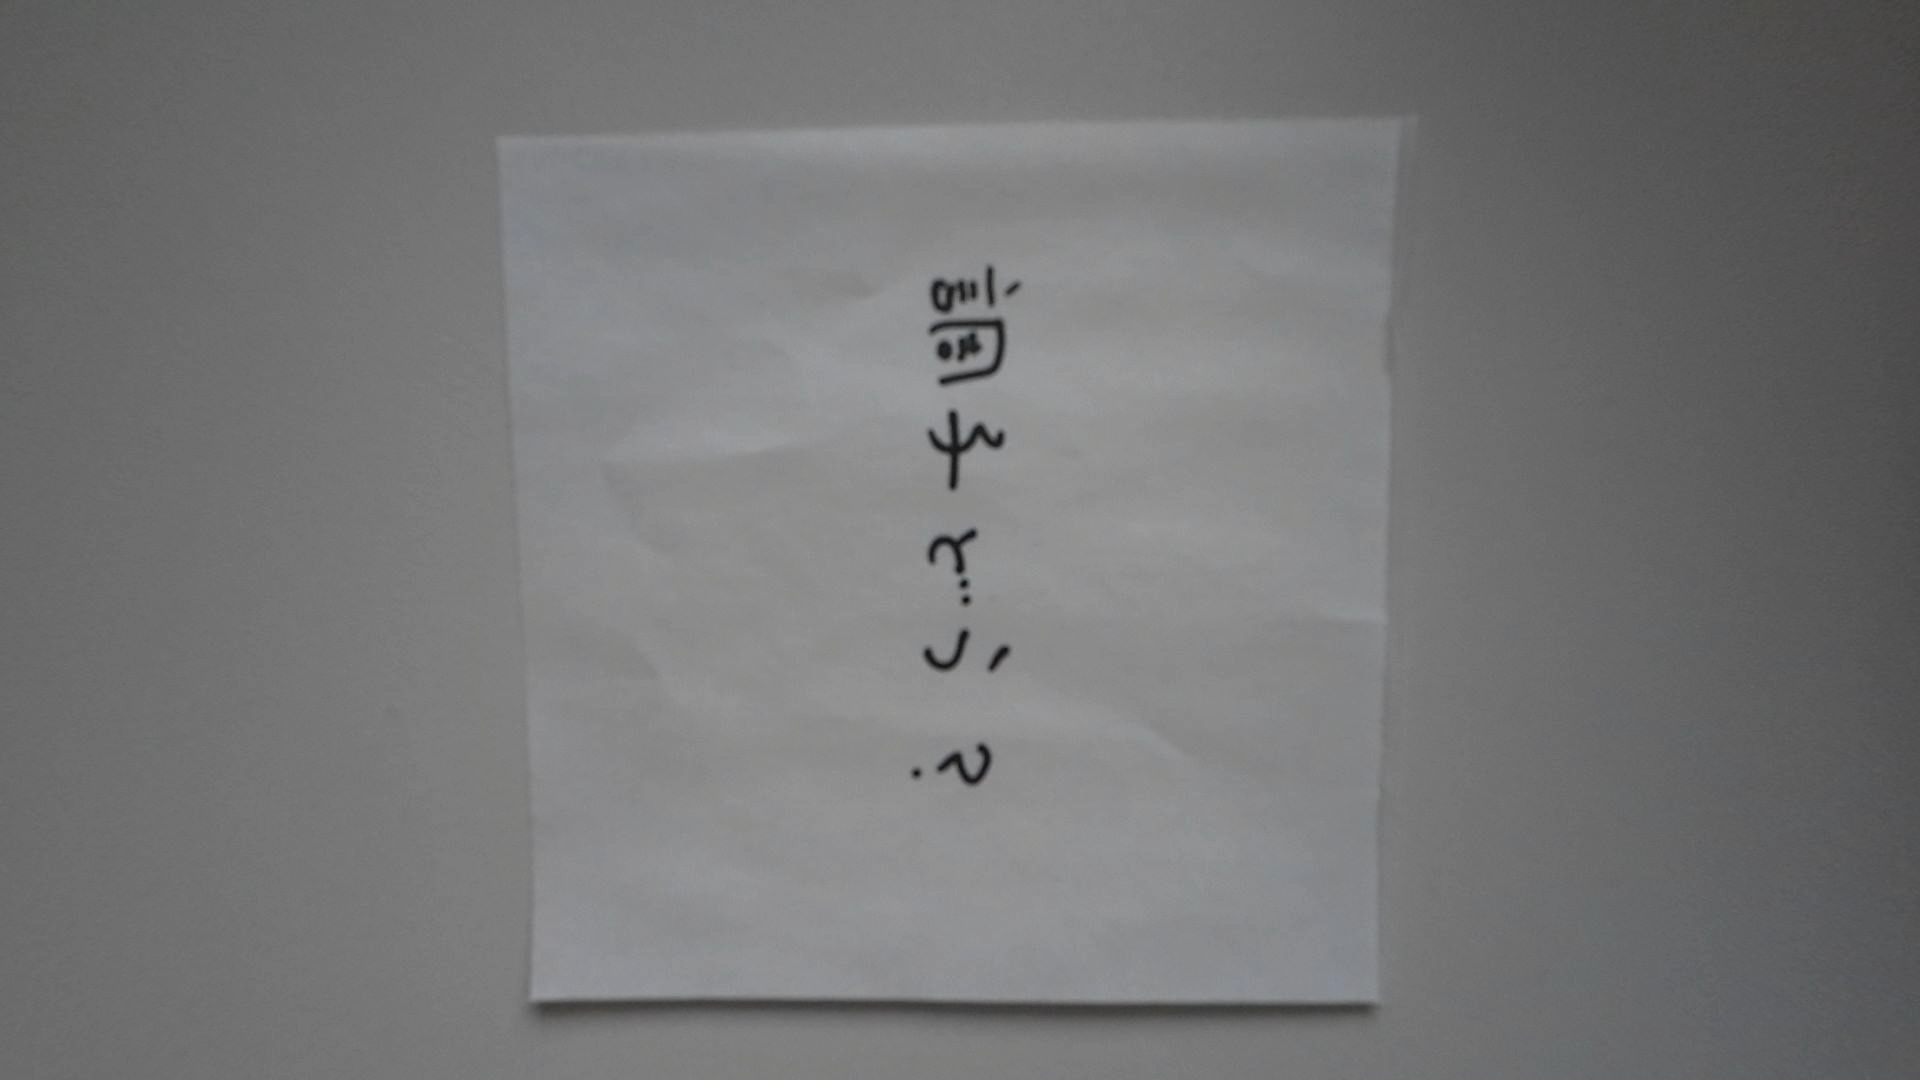 調子どう?